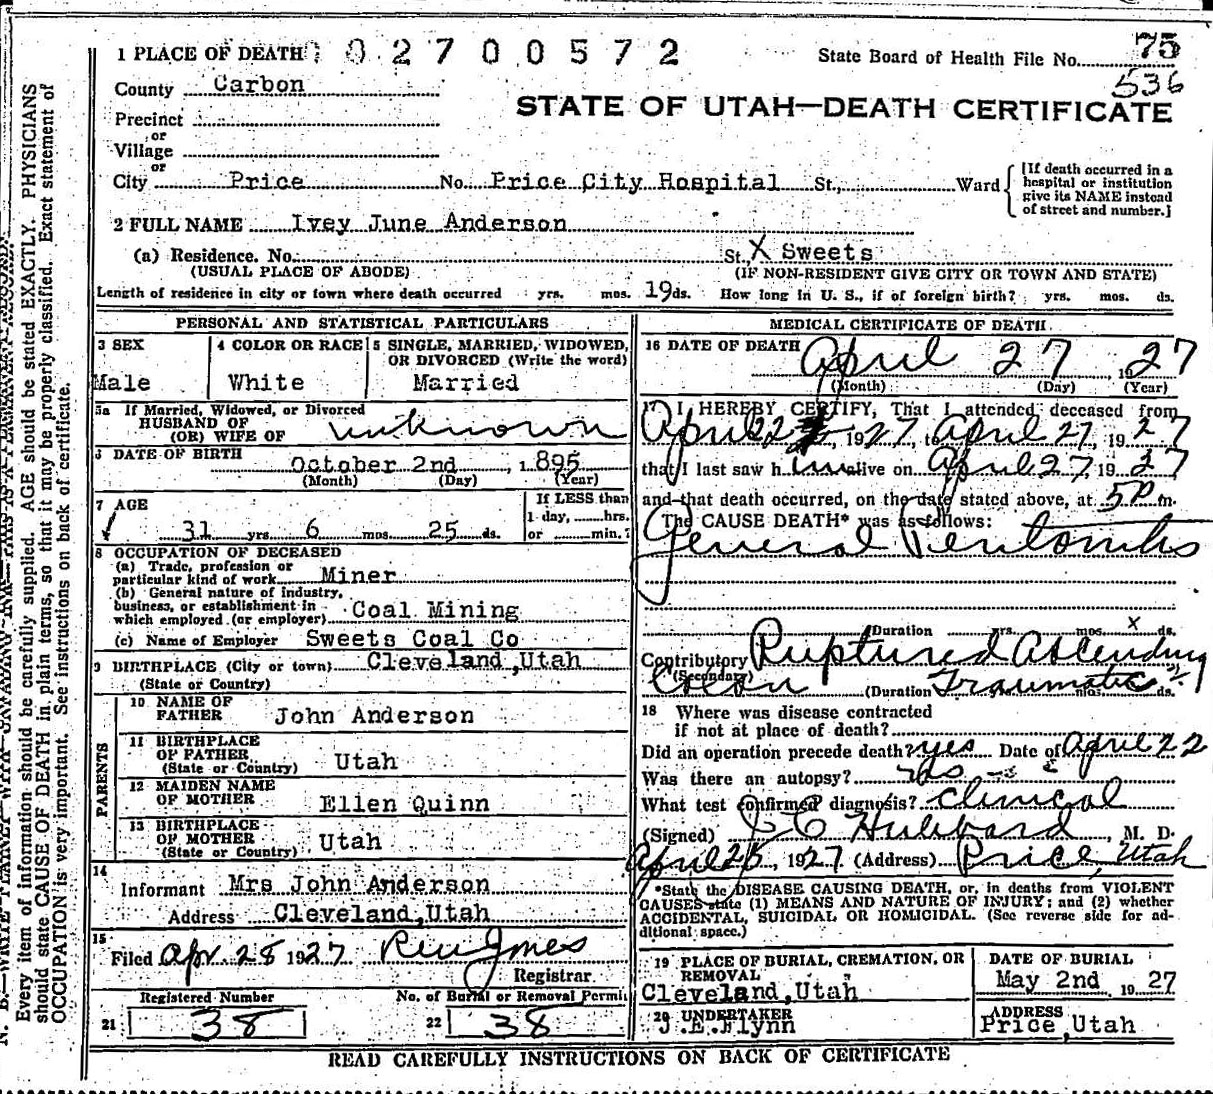 1 PLACE OF DEATH 0 0 2 7 0 0 5 7 2
State Board of Health File No. 75
536
County Carbon
STATE OF UTAH—DEATH CERTIFICATE
Precinct
or
Village
or
City Price No. Price City Hospital St., Ward [If death occurred in a hospital or institution give its NAME instead of street and number.]
2 FULL NAME Ivey June Anderson
(a) Residence. No. St. X Sweets
(USUAL PLACE OF ABODE) (IF NON-RESIDENT GIVE CITY OR TOWN AND STATE)
Length of residence in city or town where death occurred yrs. mos. 19 ds. How long in U. S., if of foreign birth? yrs. mos. ds.
PERSONAL AND STATISTICAL PARTICULARS
3 SEX
Male
4 COLOR OR RACE
White
5 SINGLE, MARRIED, WIDOWED,
OR DIVORCED (Write the word)
Married
5a If Married, Widowed, or Divorced
HUSBAND OF
(OR) WIFE OF unknown
6 DATE OF BIRTH October 2nd, 1895
(Month) (Day) (Year)
7 AGE
31 yrs 6 mos. 25 ds.
If LESS than
1 day, hrs.
or min.?
8 OCCUPATION OF DECEASED
(a) Trade, profession or
particular kind of work Miner
(b) General nature of industry,
business, or establishment in
which employed (or employer) Coal Mining
(c) Name of Employer Sweets Coal Co
9 BIRTHPLACE (City or town) Cleveland, Utah
(State or Country)
PARENTS
10 NAME OF
FATHER John Anderson
11 BIRTHPLACE
OF FATHER
(State or Country) Utah
12 MAIDEN NAME
OF MOTHER Ellen Quinn
13 BIRTHPLACE
OF MOTHER
(State or Country) Utah
14
Informant Mrs John Anderson
Address Cleveland, Utah
15
Filed Apr. 28 1927
Registrar
Registered Number
21 38
No. of Burial or Removal Permit
22 38
MEDICAL CERTIFICATE OF DEATH
16 DATE OF DEATH April 27, 1927
(Month) (Day) (Year)
17 I HEREBY CERTIFY, That I attended deceased from
April 22, 1927, to April 27, 1927
that I last saw him alive on April 27, 1927
and that death occurred, on the date stated above, at 5P m.
The CAUSE DEATH* was as follows:
General Peritonitis
(Duration yrs. mos. X ds.
Contributory Ruptured Ascending
(Secondary)
Colon (Duration Traumatic mos. ds.
18 Where was disease contracted
if not at place of death?
Did an operation precede death? yes Date of April 22
Was there an autopsy?
What test confirmed diagnosis? Clinical
(Signed) J C Hubbard, M. D.
April 28, 1927 (Address) Price, Utah
*State the DISEASE CAUSING DEATH, or, in deaths from VIOLENT
CAUSES state (1) MEANS AND NATURE OF INJURY; and (2) whether
ACCIDENTAL, SUICIDAL OR HOMICIDAL. (See reverse side for ad-
ditional space.)
19 PLACE OF BURIAL, CREMATION, OR
REMOVAL
Cleveland, Utah
DATE OF BURIAL
May 2nd, 1927
20 UNDERTAKER
J.E.Flynn
ADDRESS
Price, Utah
READ CAREFULLY INSTRUCTIONS ON BACK OF CERTIFICATE
Every item of information should be carefully supplied. AGE should be stated EXACTLY. PHYSICIANS
should state CAUSE OF DEATH in plain terms, so that it may be properly classified. Exact statement of
OCCUPATION is very important. See instructions on back of certificate.